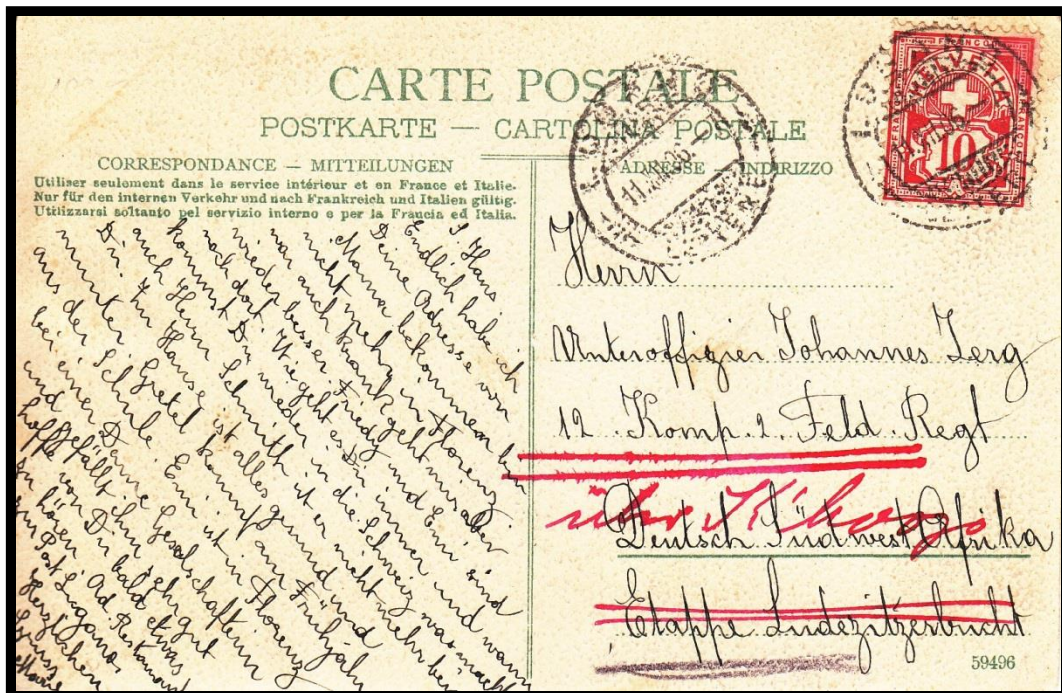 CARTE POSTALE
POSTKARTE — CARTOLINA POSTALE
CORRESPONDANCE — MITTEILUNGEN
ADRESSE INDIRIZZO
Utiliser seulement dans le service intérieur et en France et Italie.
Nur für den internen Verkehr und nach Frankreich und Italien gültig.
Utilizzarsi soltanto pel servizio interno e per la Francia ed Italia.
FRANCO
HELVETIA
10
L. Hans
Endlich habe ich
Deine Adresse von
Mama bekommen bin
nicht mehr in Florenz
war auch krank geht mir aber
wieder besser Friedy und Emi sind
noch dort. Wie geht es Dir immer und wann
kommst Du wieder in die Schweiz was macht
auch Herr Schmith ist er nicht mehr bei
Dir. Zu Hause ist alles gesund und
munter. Gretel kommt am Frühjahr
aus der Schule. Emi ist in Florenz
bei einer Dame Gesellschafterin
und gefällt ihm sehr gut
hoffe von Dir bald etwas
zu hören. Ad. Restaurant
zur Post Lugano.
Herzlichen
Gruss
Marie
Herrn
Unteroffizier Johannes Jerg
12. Komp. 2. Feld. Regt
über
Deutsch Südwest Afrika
Etappe Luderitzerbucht
59496